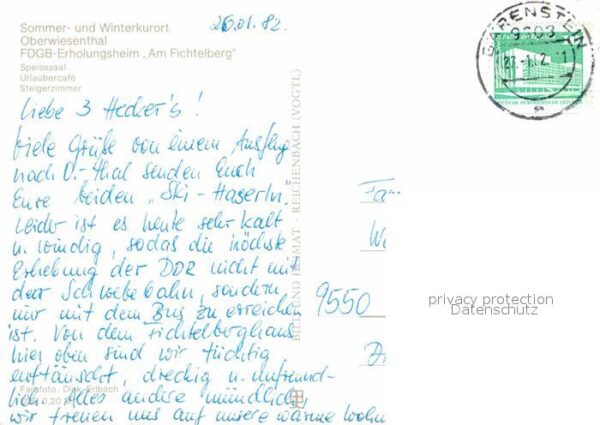 Sommer- und Winterkurort
Oberwiesenthal
FDGB-Erholungsheim „Am Fichtelberg"
Speisesaal
Urlaubercafé
Steigerzimmer
26.01.82.
BÄRENSTEIN
9303
27.-1.82.-11
Liebe 3 Hecker's!
Viele Grüße von einem Ausflug
nach O.-thal senden Euch
Eure beiden „Ski-Haserln".
Leider ist es heute sehr kalt
u. windig, sodas die höchste
Erhebung der DDR nicht mit
der Schwebebahn, sondern
nur mit dem Bus zu erreichen
ist. Von dem Fichtelberghaus
hier oben sind wir tüchtig
enttäuscht, dreckig u. unfreund-
lich. Alles andere mündlich,
wir freuen uns auf unsere warme Wohn
BILD UND HEIMAT · REICHENBACH (VOGTL)
Farbfoto: Erlbach
0,20 M
Fa
9550
privacy protection
Datenschutz